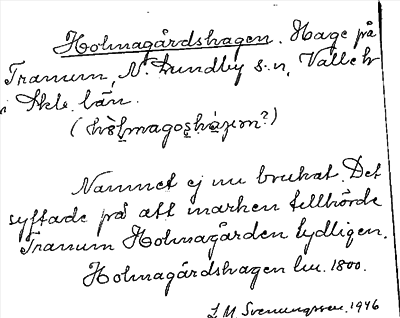 Holmagårdshagen. Hage på
Tranum, N. Lundby s:n, Valle h
i Skbl. län.
Namnet ej nu brukat. Det
syftade på att marken tillhörde
Tranum Holmagården tydligen.
Holmagårdshagen lm. 1800.
L M Svenungsson 1946